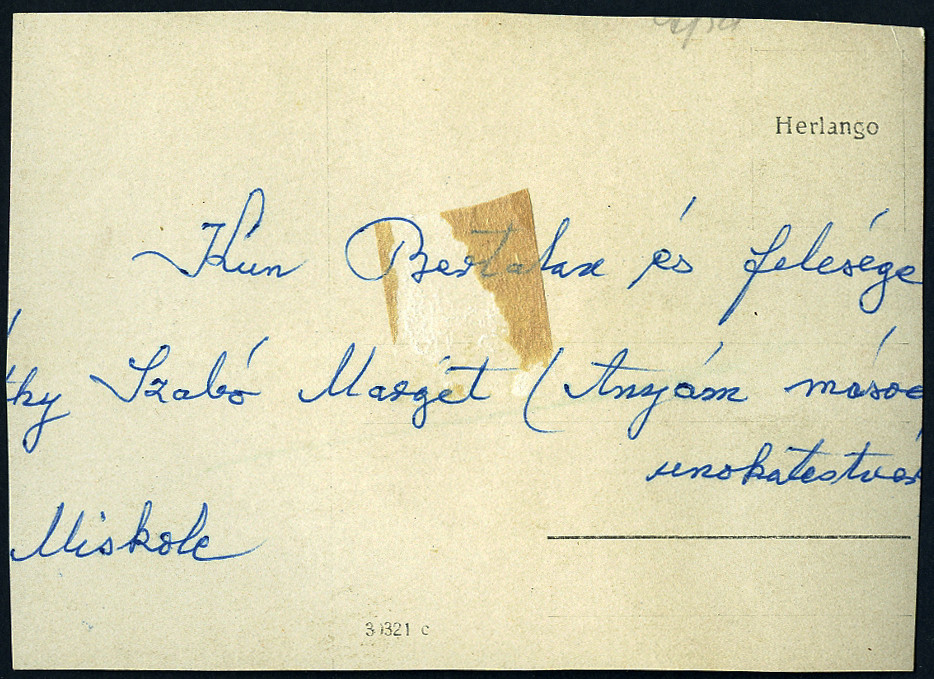 Herlango
Kun Bertalan és felesége
ky Szabó Margit (Anyám másod
unokatestvér
Miskolc
30321 c